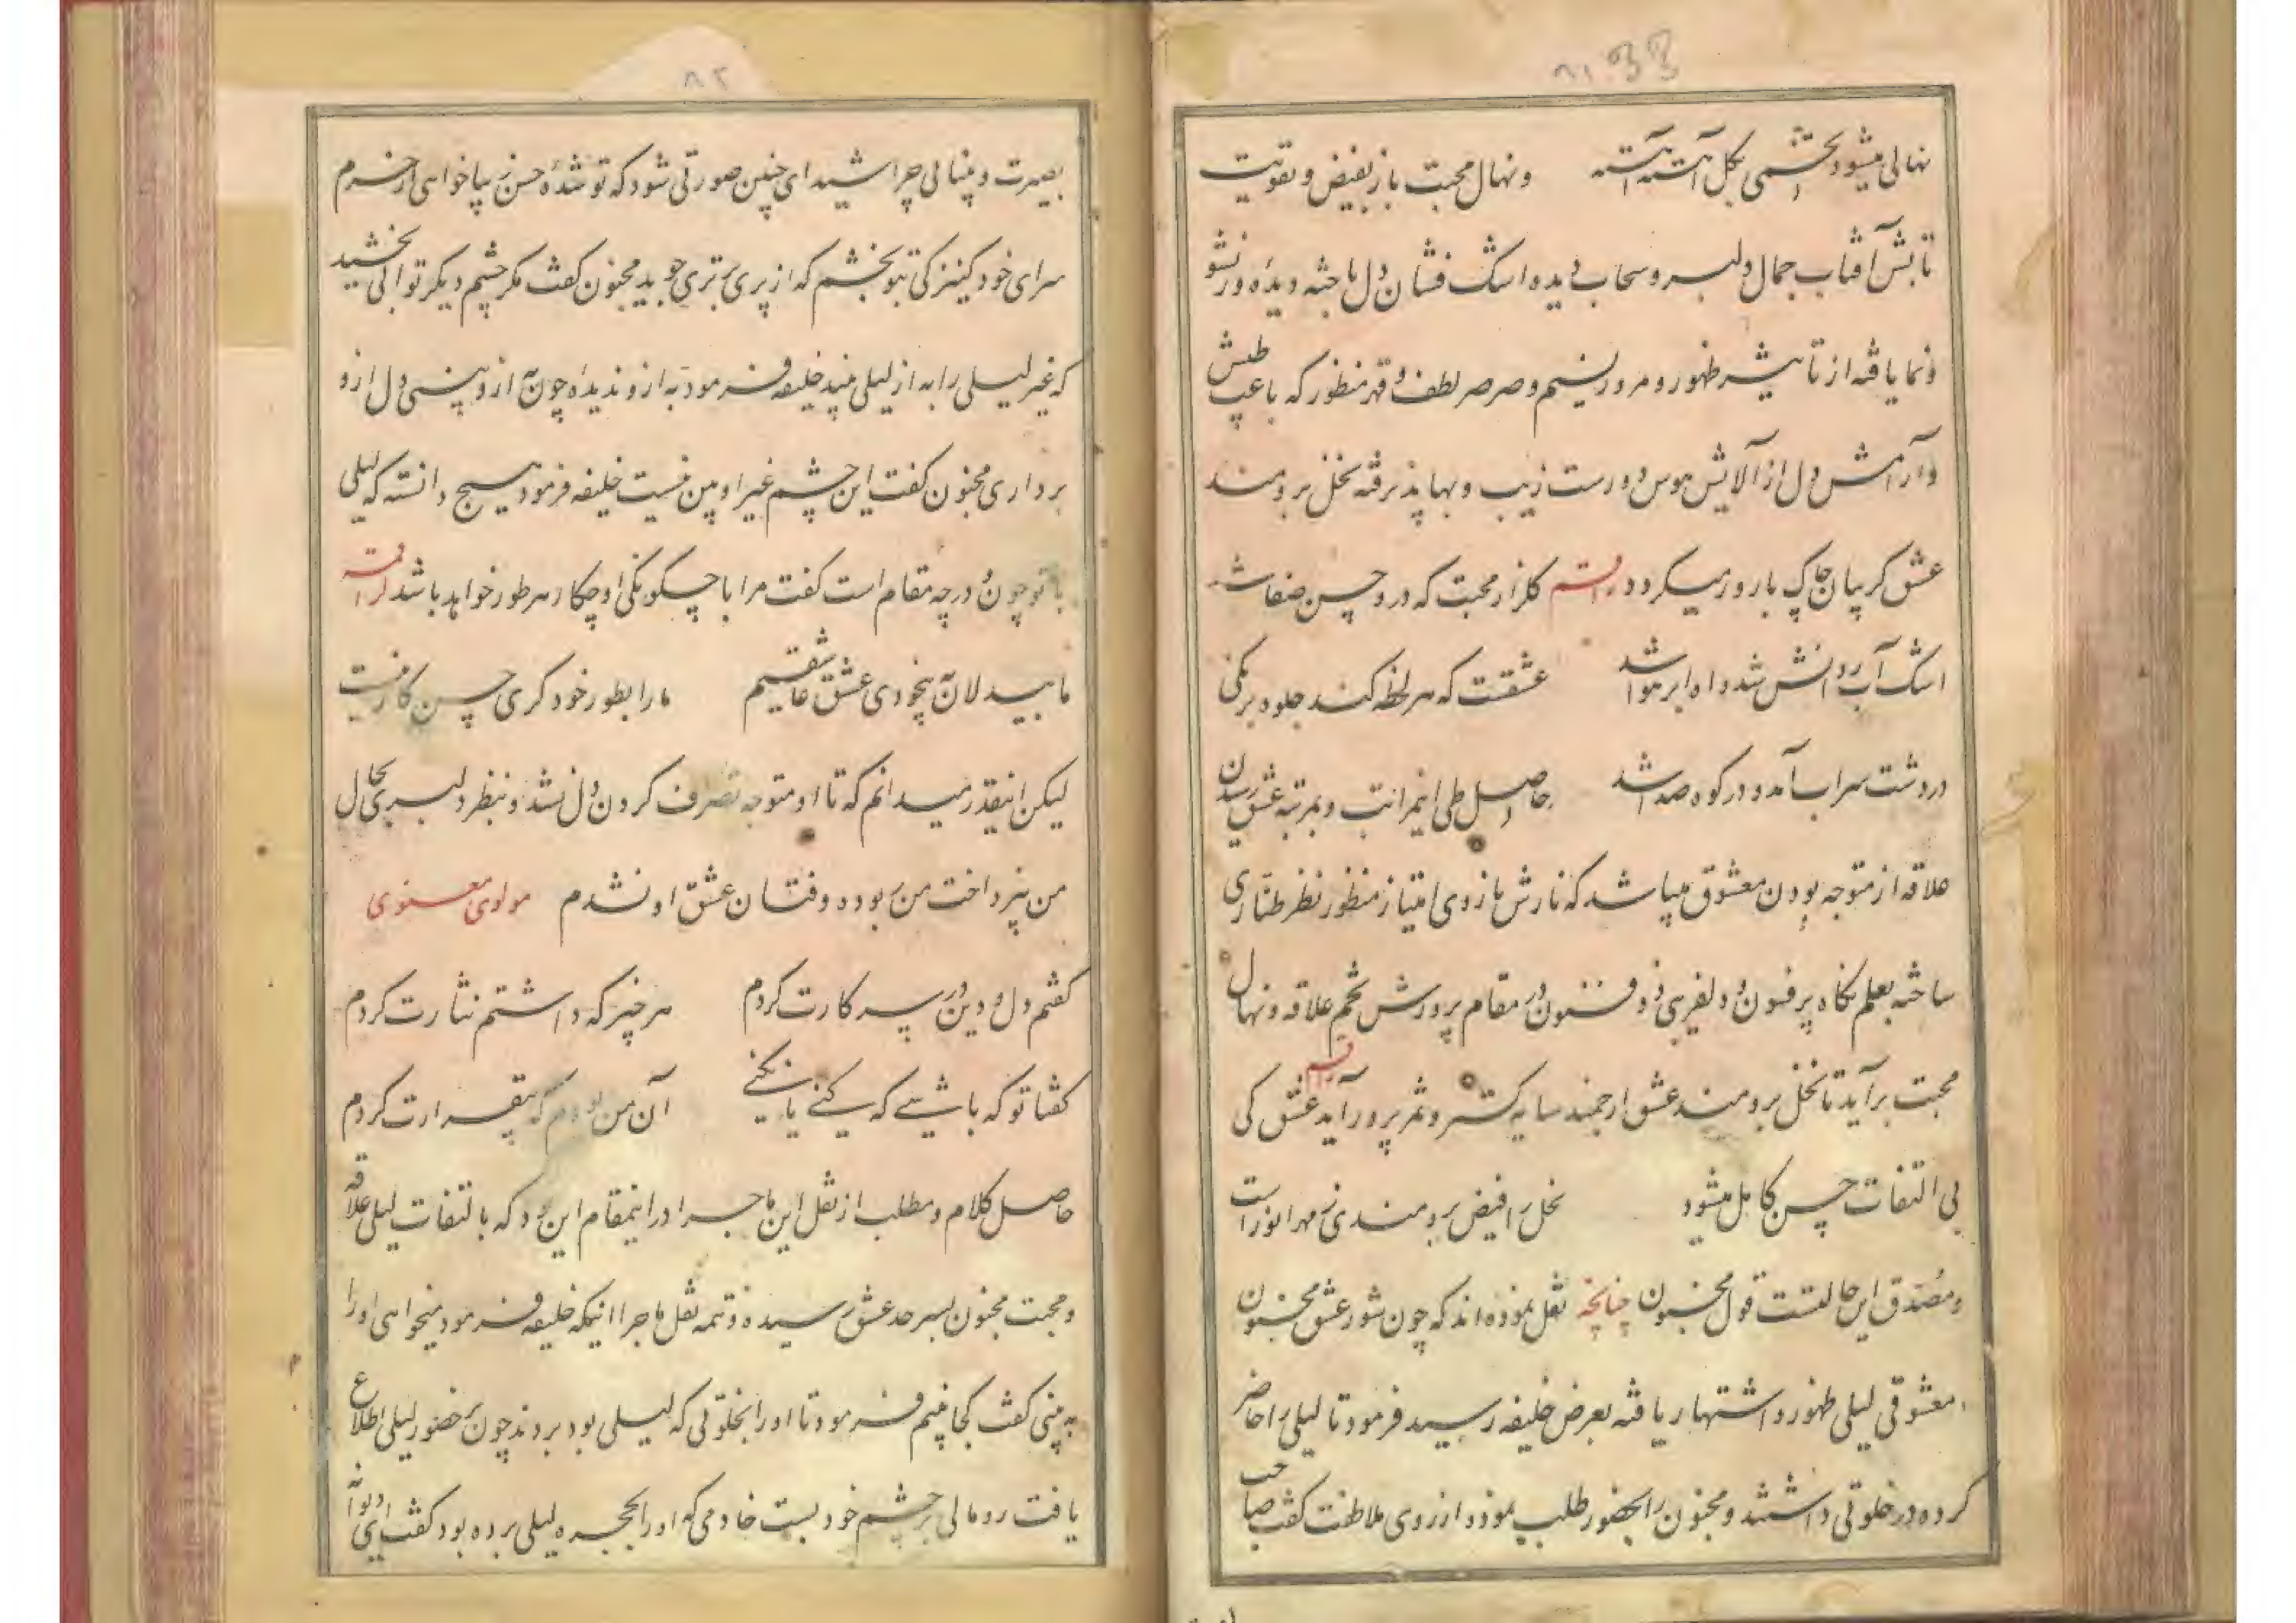 ۸۱ 33
نهالی میشود تخمی بکل آهسته آهسته ونهال محبت باز بفیض وتقویت
تابش آفتاب جمال دلبر وسحاب دیده اشک فشان دل باخته دیده ور نشو
ونما یافته از تاثیر ظهور ومرور نسیم وصرصر لطف وقهر منظور که باعث طپش
وآرامش دل از آلایش هوس دورست زیب وبها پذیرفته نخل برومند
عشق کریبان چاک بارور میکردد راقم کلزار محبت که درو حسن صفا شد
اشک آب روانش شد واه ابر هوا شد عشقت که هر لحظه کند جلوه برنکی
در دشت سراب آمد ودر کوه صدا شد حاصل طی اینمراتب وبمرتبه عشق رسیدن
علاقه از متوجه بودن معشوق میباشد که نازش از روی امتیاز منظور نظر طنازی
ساخته بعلم نکاه پر فسون ودلفریبی ذوفنون در مقام پرورش تخم علاقه ونهال
محبت برآید تا نخل برومند عشق ارجمند سایه کستر وثمر پرور آید راقم عشق کی
بی التفات حسن کامل میشود نخل را فیض برومندی ز مهر انورست
ومصدق این حالتست قول مجنون چنانچه نقل نموده اند که چون شور عشق مجنون
معشوقی لیلی ظهور واشتهار یافته بعرض خلیفه رسید فرمود تا لیلی را حاضر
کرده در خلوتی داشتند ومجنون را بحضور طلب نمود واز روی ملاطفت کفت صاحب
۸۲
بصیرت وبینائی چرا شیدای چنین صورتی شود که تو شدهٔ حسن زیبا خواهی از حرم
سرای خود کنیزکی بتو بخشم که از پری برتری جوید مجنون کفت مکر چشم دیکر توانی بخشید
که غیر لیلی را به از لیلی بیند خلیفه فرمود به ازو ندیدهٔ چون به ازو بینی دل ازو
برداری مجنون کفت این چشم غیر او بین نیست خلیفه فرمود هیچ دانستهٔ که لیلی
با تو چون ودر چه مقام است کفت مرا با چکونکی او چکار هر طور خواهد باشد لراقمه
ما بیدلان بیخودی عشق عاشقیم ما را بطور خود کری حسن کار نیست
لیکن اینقدر میدانم که تا او متوجه تصرف کردن دل نشد وبنظر دلبری بحال
من نپرداخت من ربوده وفتان عشق او نشدم مولوی معنوی
کفتم دل ودین بر سر کارت کردم هر چیز که داشتم نثارت کردم
کفتا تو که باشی که کنی یا نکنی آن من بودم که بیقرارت کردم
حاصل کلام ومطلب از نقل این ماجرا در اینمقام این بود که بالتفات لیلی علاقه
ومحبت مجنون بسرحد عشق رسیده وتتمه نقل ماجرا اینکه خلیفه فرمود میخواهی او را
به بینی کفت کجا بینم فرمود تا او را بخلوتی که لیلی بود بردند چون بر حضور لیلی اطلاع
یافت رومالی بر چشم خود بست خادمی که او را بحجره لیلی برده بود کفت ای دیوانه